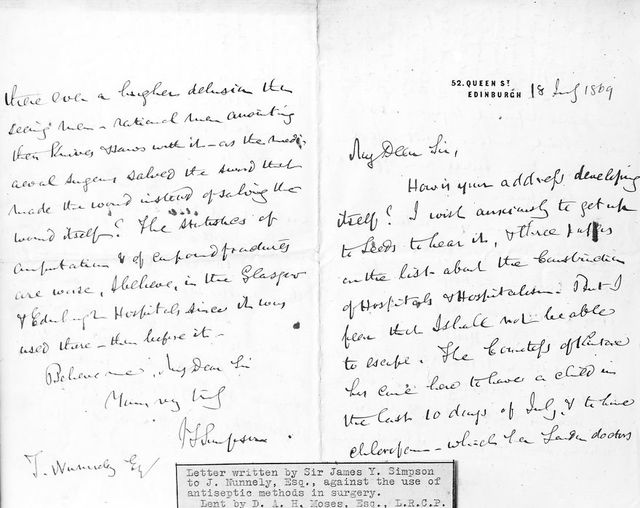 52. QUEEN ST
EDINBURGH 18 July 1869
My Dear Sir,
How is your address developing
itself? I wish anxiously to get up
to Leeds to hear it, & three
on the list about the Construction
of Hospitals & Hospitalism. But I
fear that I shall not be able
to escape. The Countess of
has come here to have a child in
the last 10 days of July, & to have
chloroform - which her London doctors
there ever a bigger delusion than
seeing men - rational men anointing
their knives & saws with it - as the medi-
aeval surgeons salved the sword that
made the wound instead of salving the
wound itself? The Statistics of
amputation & of compound fractures
are worse, I believe, in the Glasgow
& Edinburgh Hospitals since it was
used there - than before it -
Believe me, My Dear Sir
Yours very truly
J Y Simpson
T. Nunnely Esq
Letter written by Sir James Y. Simpson
to J. Nunnely, Esq., against the use of
antiseptic methods in surgery.
Lent by D. A. H. Moses, Esq., L.R.C.P.